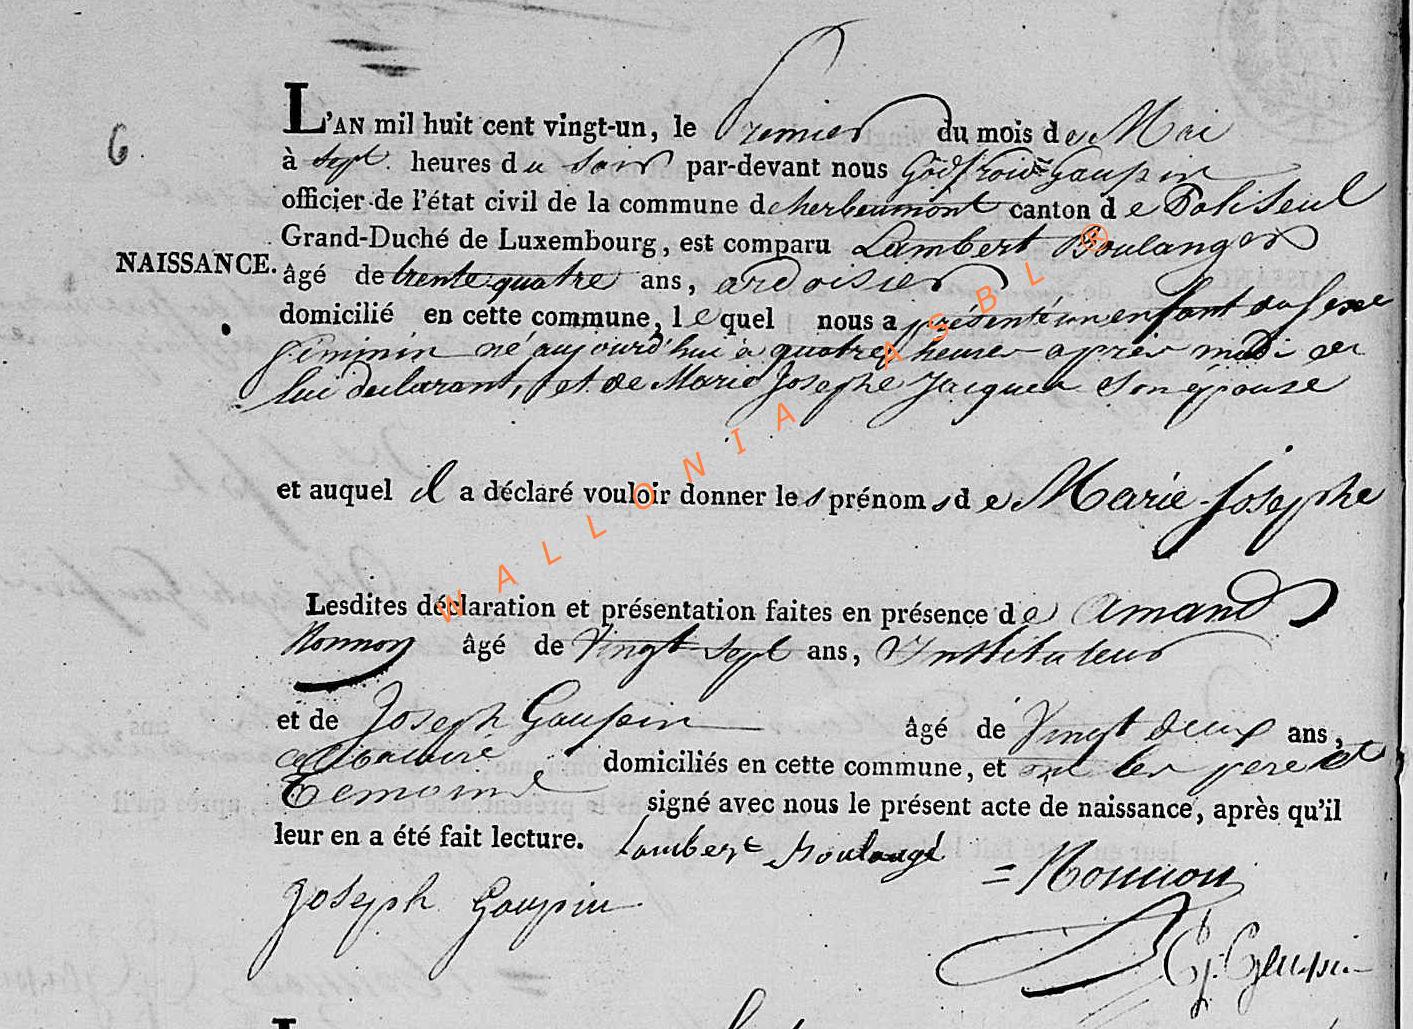 6
L'AN mil huit cent vingt-un, le Premier du mois de Mai
à sept heures du soir par-devant nous Godfroid Gaupin
officier de l'état civil de la commune de herbeumont canton de Paliseul
Grand-Duché de Luxembourg, est comparu Lambert Boulanger
NAISSANCE. âgé de trente quatre ans, ardoisier
domicilié en cette commune, lequel nous a présenté un enfant du sexe
féminin né aujourd'hui à quatre heures après midi de
lui declarant, et de Marie Josephe Jacques son épouse
et auquel il a déclaré vouloir donner les prénoms de Marie Josephe
Lesdites déclaration et présentation faites en présence de Amand
Nonnon âgé de Vingt sept ans, Instituteur
et de Joseph Gaupin âgé de Vingt deux ans,
domiciliés en cette commune, et ont les pere et
Temoins signé avec nous le présent acte de naissance, après qu'il
leur en a été fait lecture. Lambert Boulangé
= Nonnon
Joseph Gaupin
G. Gaupin
WALLONIA ASBL ®